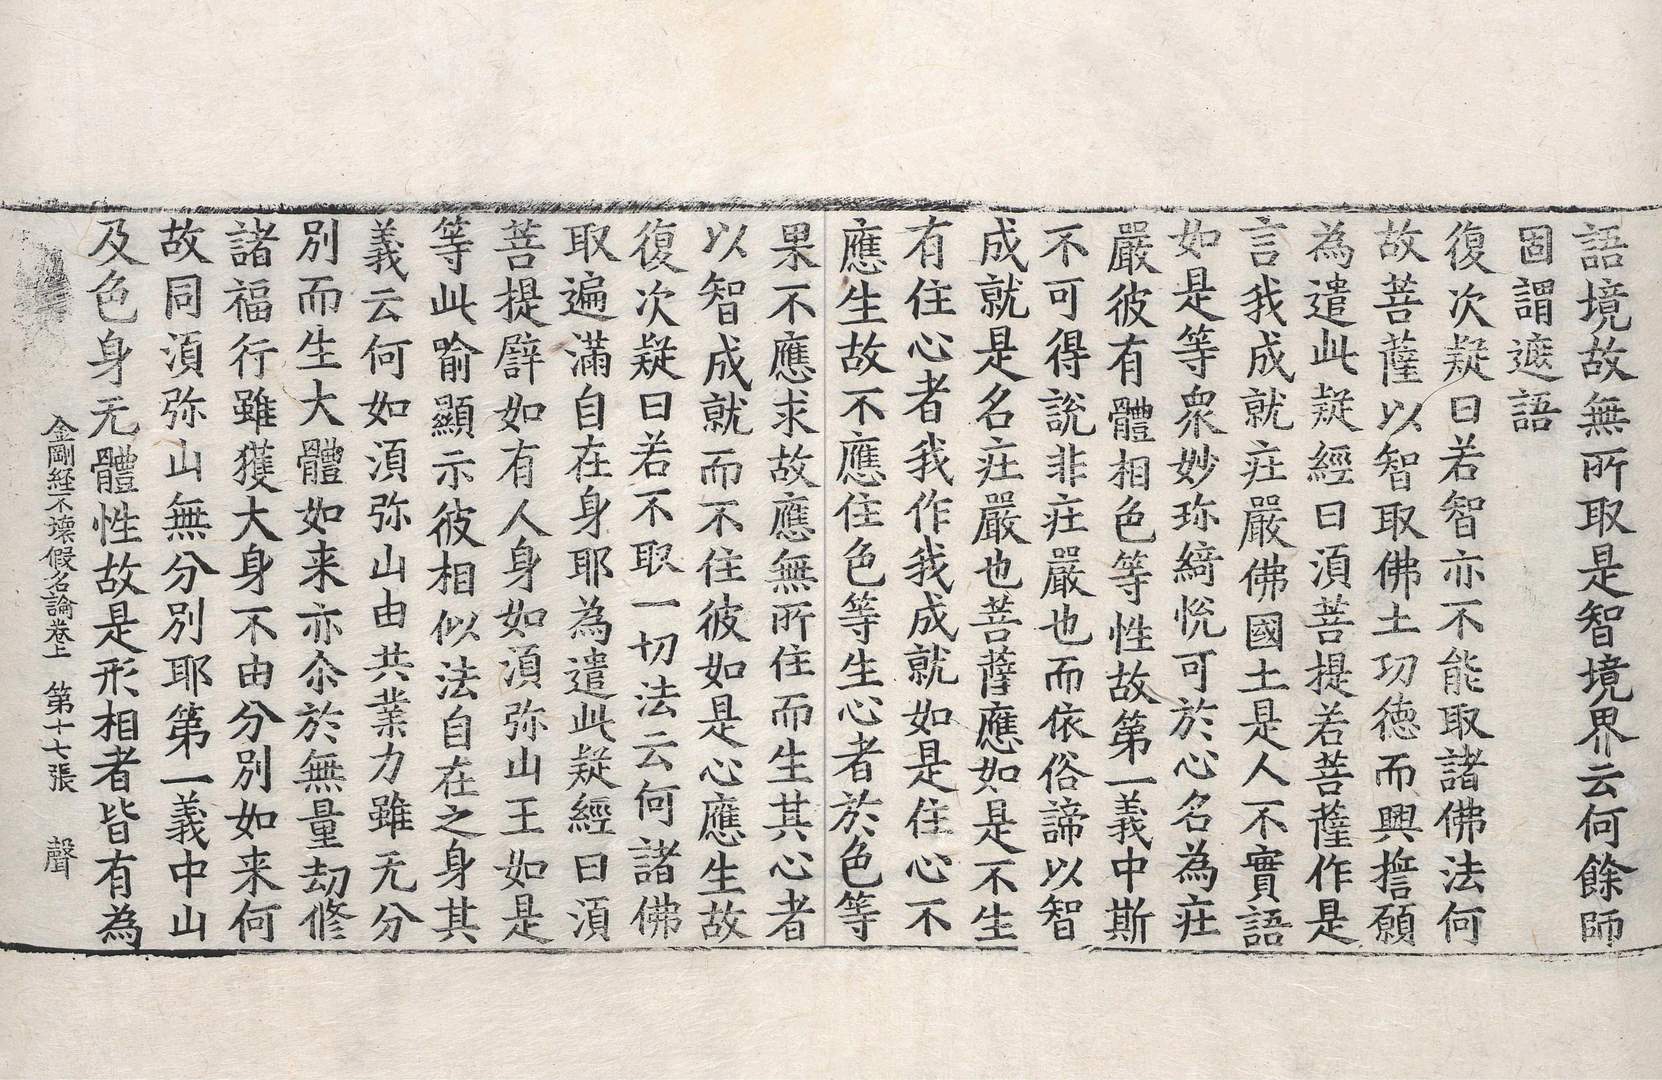 語境故無所取是智境界云何餘師
固謂遮語
復次疑曰若智亦不能取諸佛法何
故菩薩以智取佛土功徳而興擔願
為遣此疑經曰湏菩提若菩薩作是
言我成就庄嚴佛國土是人不實語
如是等衆妙珎綺恱可於心名為庄
嚴彼有體相色等性故第一義中斯
不可得說非庄嚴也而依俗諦以智
成就是名庄嚴也菩薩應如是不生
有住心者我作我成就如是住心不
應生故不應住色等生心者於色等
果不應求故應無所住而生其心者
以智成就而不住彼如是心應生故
復次疑曰若不取一切法云何諸佛
取遍滿自在身耶為遣此疑經曰湏
菩提譬如有人身如湏弥山王如是
等此喻顯示彼相似法自在之身其
義云何如湏弥山由共業力雖无分
別而生大體如来亦尒於無量劫修
諸福行雖獲大身不由分別如来何
故同湏弥山無分別耶第一義中山
及色身无體性故是形相者皆有為
金剛經不壞假名論卷上 第十七張 聲